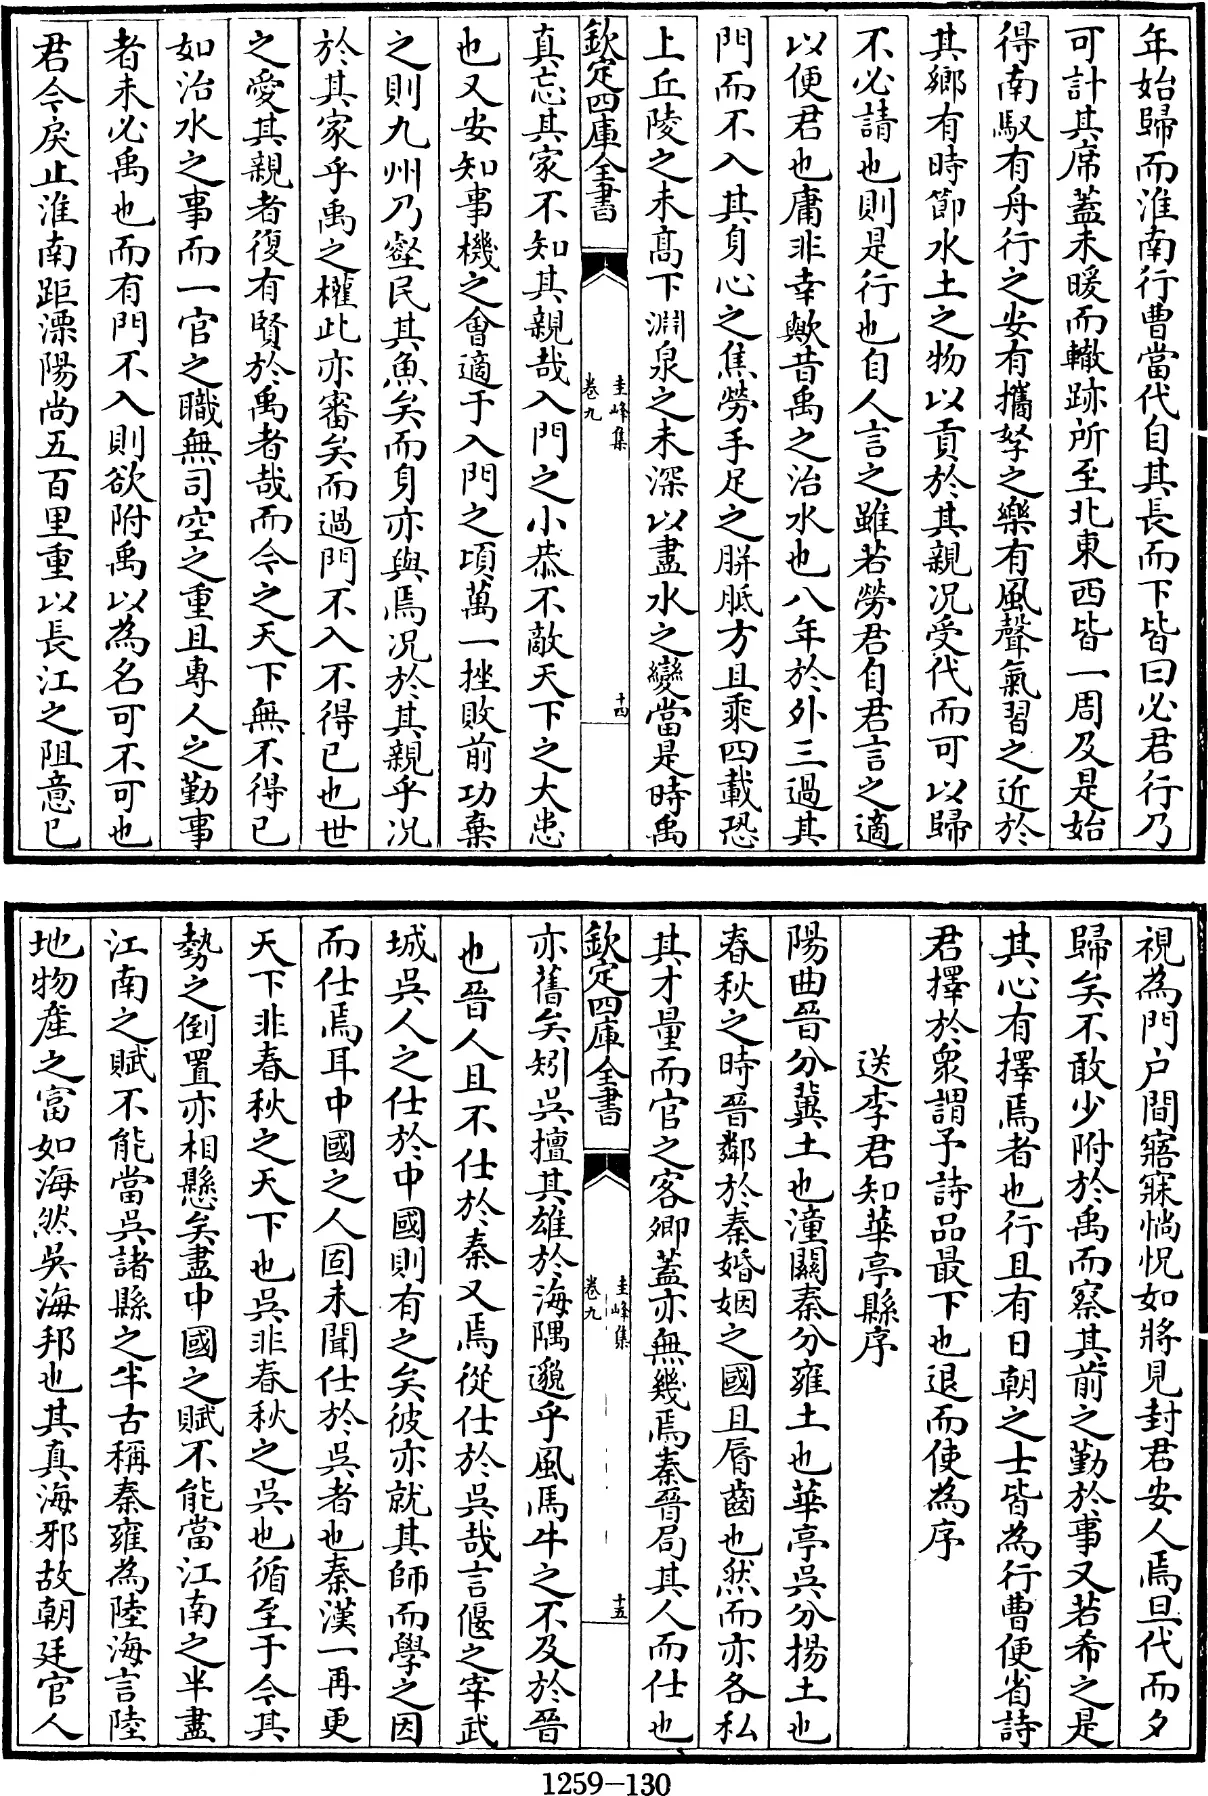 年始歸而淮南行曹當代自其長而下皆曰必君行乃
可計其席蓋未暖而轍跡所至北東西皆一周及是始
得南馭有舟行之安有攜孥之樂有風聲氣習之近於
其鄉有時節水土之物以貢於其親况受代而可以歸
不必請也則是行也自人言之雖若勞君自君言之適
以便君也庸非幸歟昔禹之治水也八年於外三過其
門而不入其身心之焦勞手足之胼胝方且乘四載恐
上丘陵之未高下淵泉之未深以盡水之變當是時禹
欽定四庫全書
圭峰集
卷九
十四
真忘其家不知其親哉入門之小恭不敵天下之大患
也又安知事機之會適于入門之頃萬一挫敗前功棄
之則九州乃壑民其魚矣而身亦與焉况於其親乎况
於其家乎禹之權此亦審矣而過門不入不得已也世
之愛其親者復有賢於禹者哉而今之天下無不得已
如治水之事而一官之職無司空之重且專人之勤事
者未必禹也而有門不入則欲附禹以為名可不可也
君今戾止淮南距溧陽尚五百里重以長江之阻意已
視為門户間寤寐惝怳如將見封君安人焉旦代而夕
歸矣不敢少附於禹而察其前之勤於事又若希之是
其心有擇焉者也行且有日朝之士皆為行曹便省詩
君擇於衆謂予詩品最下也退而使為序
送李君知華亭縣序
陽曲晉分冀土也潼關秦分雍土也華亭吳分揚土也
春秋之時晉鄰於秦婚姻之國且脣齒也然而亦各私
其才量而官之客卿蓋亦無幾焉秦晉局其人而仕也
欽定四庫全書
圭峰集
卷九
十五
亦舊矣矧吳擅其雄於海隅邈乎風馬牛之不及於晉
也晉人且不仕於秦又焉從仕於吳哉言偃之宰武
城吳人之仕於中國則有之矣彼亦就其師而學之因
而仕焉耳中國之人固未聞仕於吳者也秦漢一再更
天下非春秋之天下也吳非春秋之吳也循至于今其
勢之倒置亦相懸矣盡中國之賦不能當江南之半盡
江南之賦不能當吳諸縣之半古稱秦雍為陸海言陸
地物產之富如海然吳海邦也其真海邪故朝廷官人
1259-130